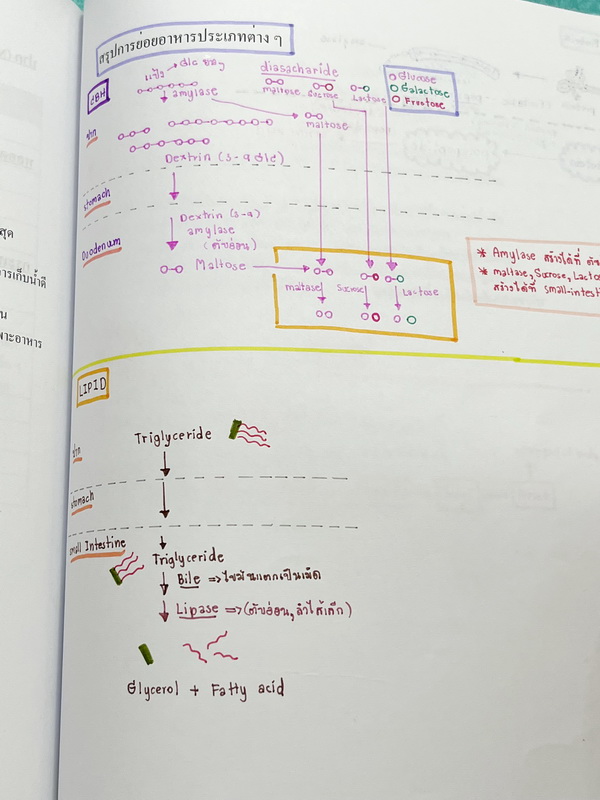 สรุปการย่อยอาหารประเภทต่าง ๆ
CBH
แป้ง → Glc
amylase
diasacharide
maltose
Sucrose
Lactose
Glucose
Galactose
Fructose
ปาก
maltose
Dextrin (3-9 Glc)
stomach
Duodenum
Dextrin (3-9)
amylase
(ตับอ่อน)
Maltose
maltase
Sucrose
Lactose
* Amylase สร้างได้ที่
* maltase, Sucrose,
สร้างได้ที่ small-intest
สุด
การเก็บน้ำดี
LIPID
ปาก
Triglyceride
stomach
small Intestine
Triglyceride
Bile => ไขมันแตกเป็นเม็ด
Lipase => (ตับอ่อน, ลำไส้เล็ก)
Glycerol + Fatty acid